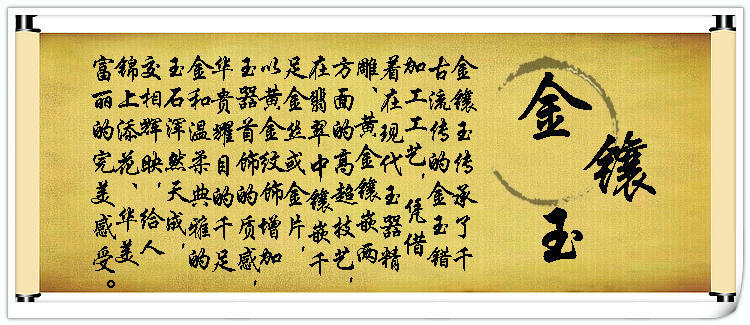 金镶玉
金镶玉传承了千
古流传的金玉错
加工工艺,凭借
着在现代玉器精
雕、黄金镶嵌两
方面的高超技艺,
在翡翠中镶嵌千
足金丝或金片,
以黄金纹饰增加
玉器首饰的质感,
华贵耀目的千足
金和温柔典雅的
玉石浑然天成,
交相辉映,给人
锦上添花、华美
富丽的完美感受。